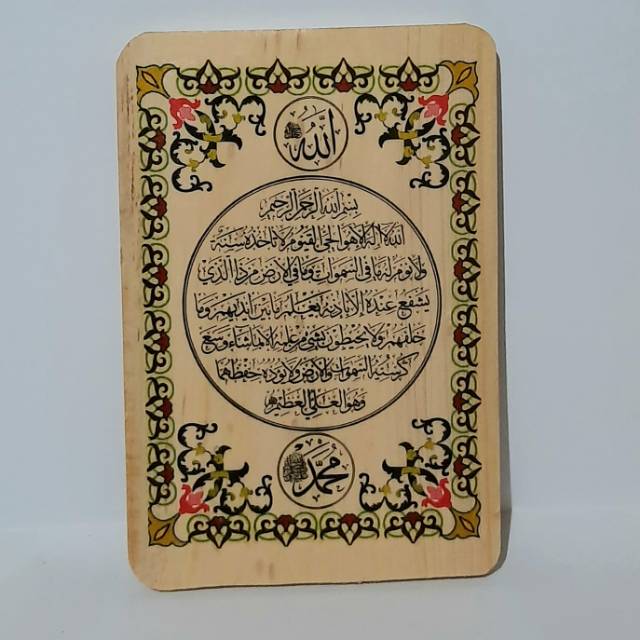 الله
بسم الله الرحمن الرحيم
الله لا إله إلا هو الحي القيوم لا تأخذه سنة
ولا نوم له ما في السموات وما في الأرض من ذا الذي
يشفع عنده إلا بإذنه يعلم ما بين أيديهم وما
خلفهم ولا يحيطون بشيء من علمه إلا بما شاء وسع
كرسيه السموات والأرض ولا يؤده حفظهما
وهو العلي العظيم
محمد